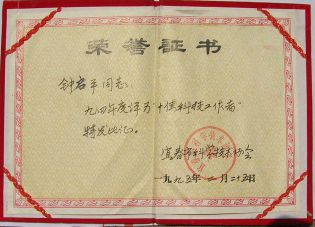 荣誉证书
钟启平同志：
九四年度评为“十佳科技工作者”
特发此证。
宜春市科学技术协会
一九九五年二月二十五日